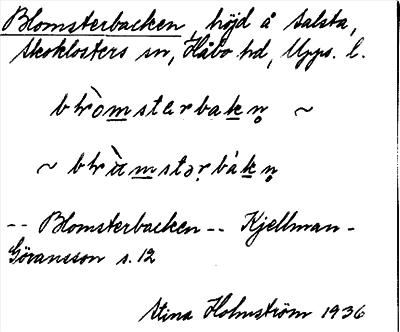 Blomsterbacken, höjd å Salsta,
Skoklosters sn, Håbo hd, Upps. l.
blòmstərbakn̥ ~
~ blùmstərbàkn̥
-- Blomsterbacken -- Kjellman-
Göransson s. 12
Stina Holmström 1936